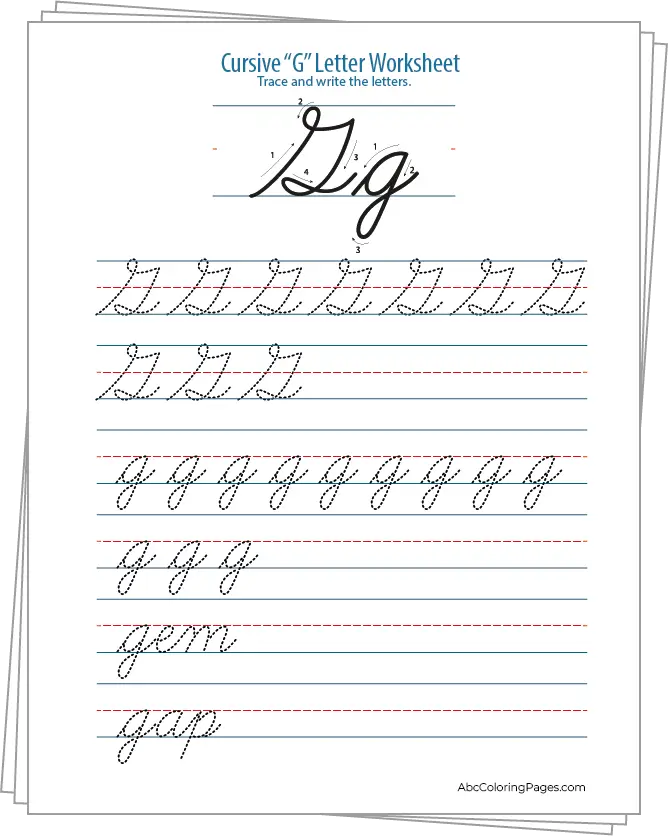 Cursive “G” Letter Worksheet
Trace and write the letters.
2
1 3 1
4 2
G g
3
G G G G G G G
G G G
g g g g g g g g g
g g g
gem
gap
AbcColoringPages.com